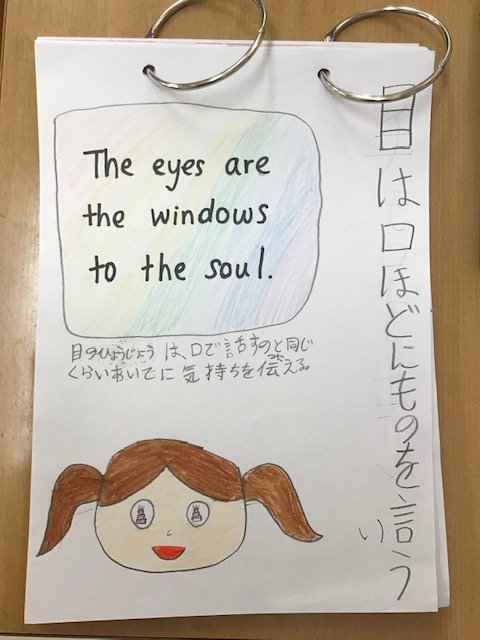 目は口ほどにものを言う
い
The eyes are
the windows
to the soul.
目のひょうじょうは、口で話すのと同じ
くらいあいてに気持ちを伝える。